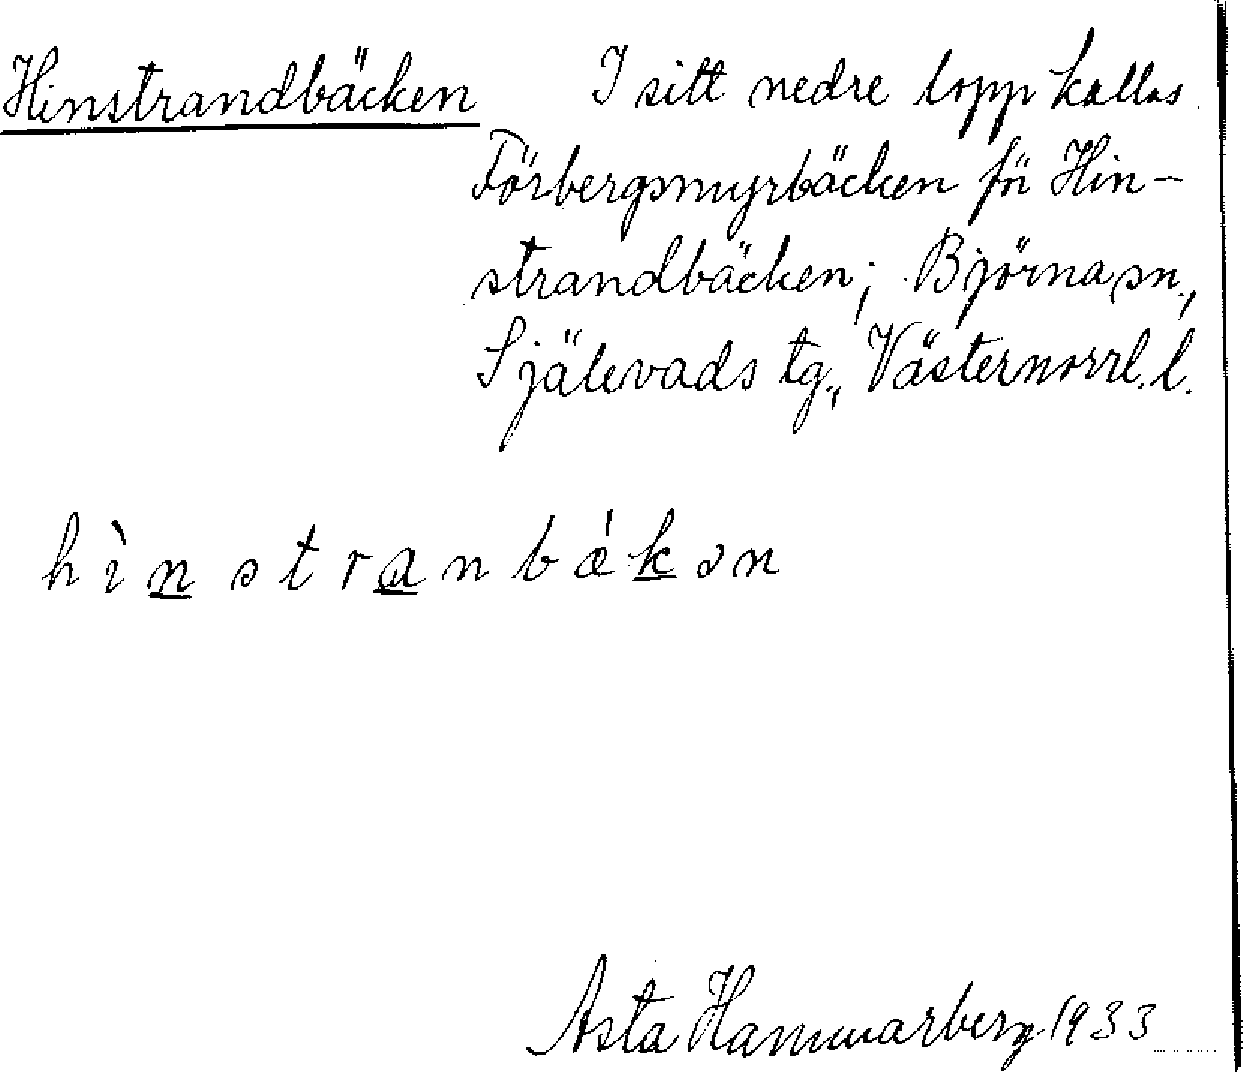 Hinstrandbäcken I sitt nedre lopp kallas
Förbergsmyrbäcken för Hin-
strandbäcken; Björna sn,
Själevads tg, Västernorrl. l.
hìnstranbǽkən
Asta Hammarberg 1933